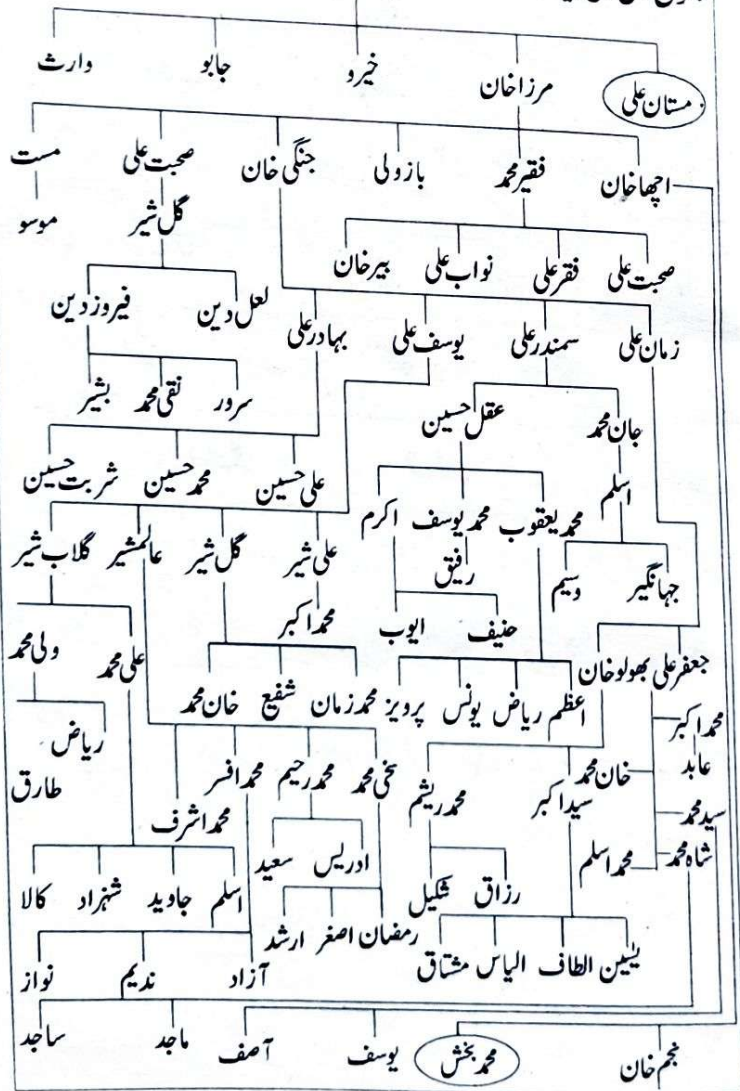 مستان علی مرزا خان خیرو جابو وارث
اچھا خان فقیر محمد باز ولی جنگی خان صحبت علی مست
گل شیر موسو
صحبت علی فقر علی نواب علی بیر خان
لعل دین فیروز دین
زمان علی سمندر علی یوسف علی بہادر علی
سرور نقی محمد بشیر
جان محمد عقل حسین
علی حسین محمد حسین شربت حسین
اسلم محمد یعقوب محمد یوسف اکرم
علی شیر گل شیر عالمشیر گلاب شیر
رفیق
جہانگیر وسیم حنیف ایوب
محمد اکبر
جعفر علی بھولو خان علی محمد ولی محمد
اعظم ریاض یونس پرویز محمد زمان شفیع خان محمد
محمد اکبر ریاض
عابد خان محمد سید اکبر محمد ریشم سخی محمد محمد رحیم محمد افسر طارق
سید محمد محمد اشرف
شاہ محمد محمد اسلم ادریس سعید
رزاق شکیل اسلم جاوید شہزاد کالا
رمضان اصغر ارشد
یٰسین الطاف الیاس مشتاق آزاد ندیم نواز
نجم خان محمد بخش یوسف آصف ماجد ساجد